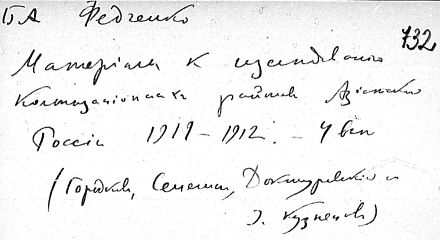 БА Федченко
732
Матеріалы к изслѣдованію
Колонизаціонныхъ районов Азіатской
Россіи 1911–1912. – 4 вып
(Городков, Сенегин, Доктуровский и
Кузнецов)